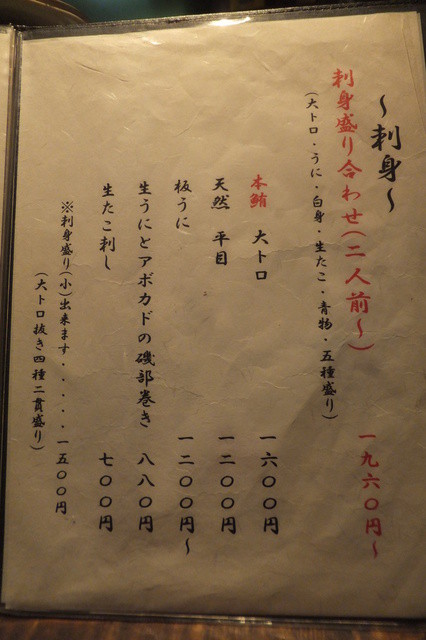 ～刺身～
刺身盛り合わせ（二人前～） 一九六〇円～
（大トロ・うに・白身・生たこ・青物・五種盛り）
本鮪 大トロ 一六〇〇円
天然 平目 一二〇〇円
板うに 一二〇〇円～
生うにとアボカドの磯部巻き 八八〇円
生たこ刺し 七〇〇円
※刺身盛り（小）出来ます・・・・・一五〇〇円
（大トロ抜き四種二貫盛り）